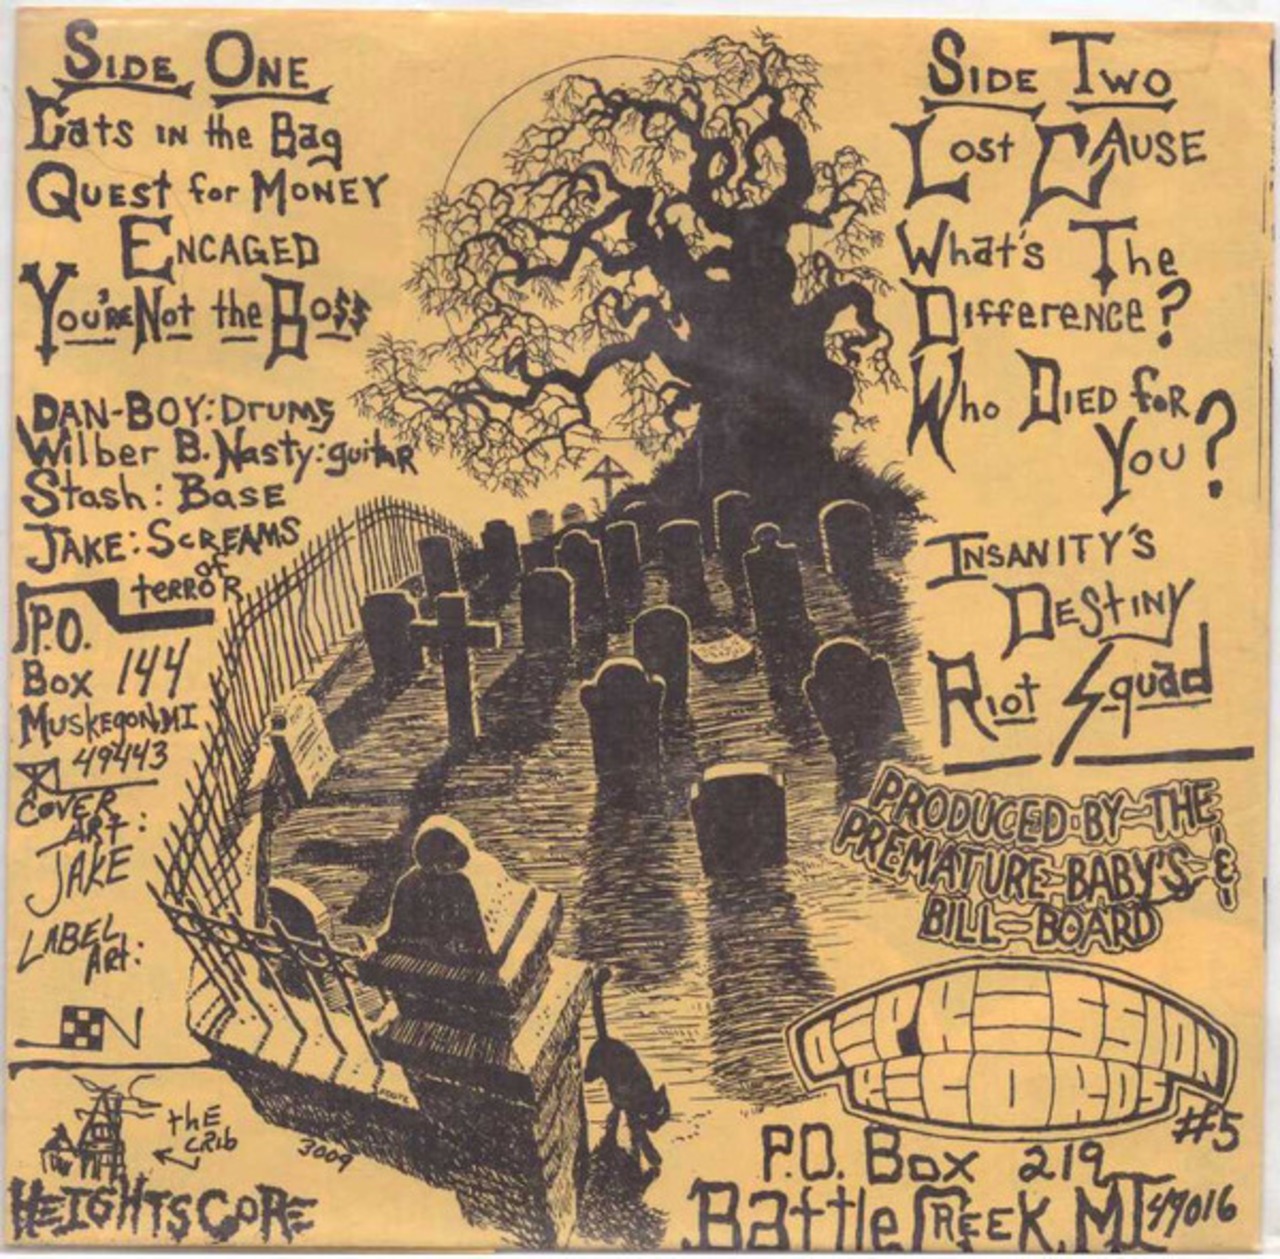 SIDE ONE
Cats IN the Bag
QUEST for MONEY
ENCAGED
YOU'RE Not the BO$$
DAN-BOY: Drums
Wilber B. Nasty: guitar
Stash: BASE
JAKE: SCREAMS
of
terror
P.O.
Box 144
MUSKEGON, MI
49443
COVER
ART:
JAKE
LABEL
Art:
the
CRib
3009
HEIGHTSCORE
SIDE TWO
Lost CAUSE
What's The
Difference?
Who DIED for
You?
INSANITY'S
DEStiNY
Riot Squad
PRODUCED BY THE
PREMATURE BABY'S &
BILL BOARD
DEPRESSION
RECORDS
#5
P.O. Box 219
Battle CREEK, MI 49016